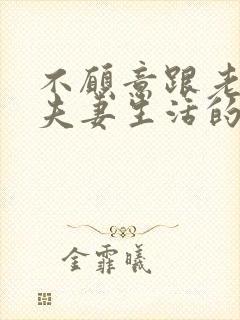 不愿意跟老
夫妻生活的
金霏曦